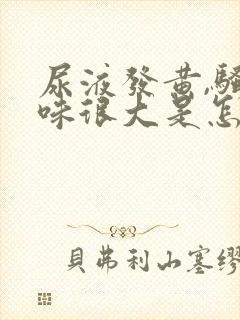 尿液發黃,騷
味很大是怎
貝弗利山塞繆